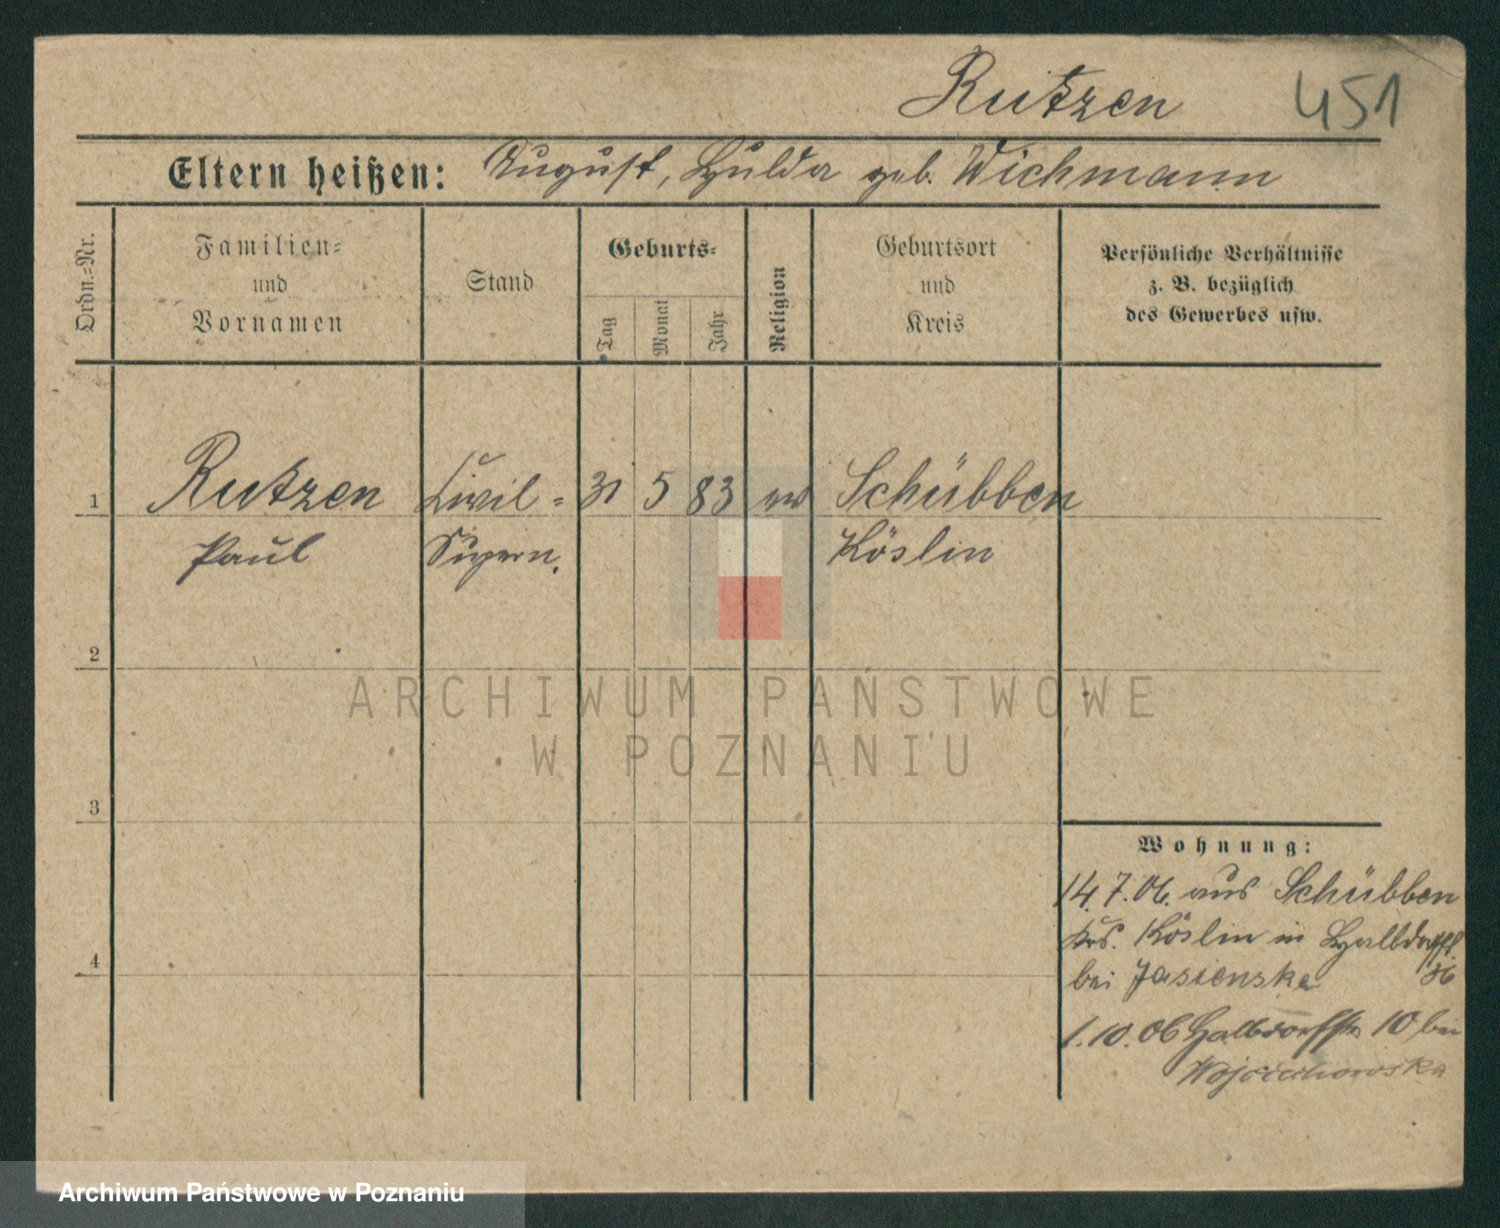 Rutzen 451
Eltern heißen: August, Hulda geb. Wichmann
Ordn.=Nr.
Familien=
und
Vornamen
Stand
Geburts=
Tag
Monat
Jahr
Religion
Geburtsort
und
Kreis
Persönliche Verhältnisse
z. B. bezüglich
des Gewerbes usw.
1 Rutzen Civil = 31 5 83 ev Schübben
Paul Supern. Köslin
2
3
4
ARCHIWUM PAŃSTWOWE
W POZNANIU
Wohnung:
14.7.06. aus Schübben
Krs. Köslin in Halbdorfst.
bei Jasienska 36
1.10.06 Halbdorfstr 10 bei
Wojciechowska
Archiwum Państwowe w Poznaniu